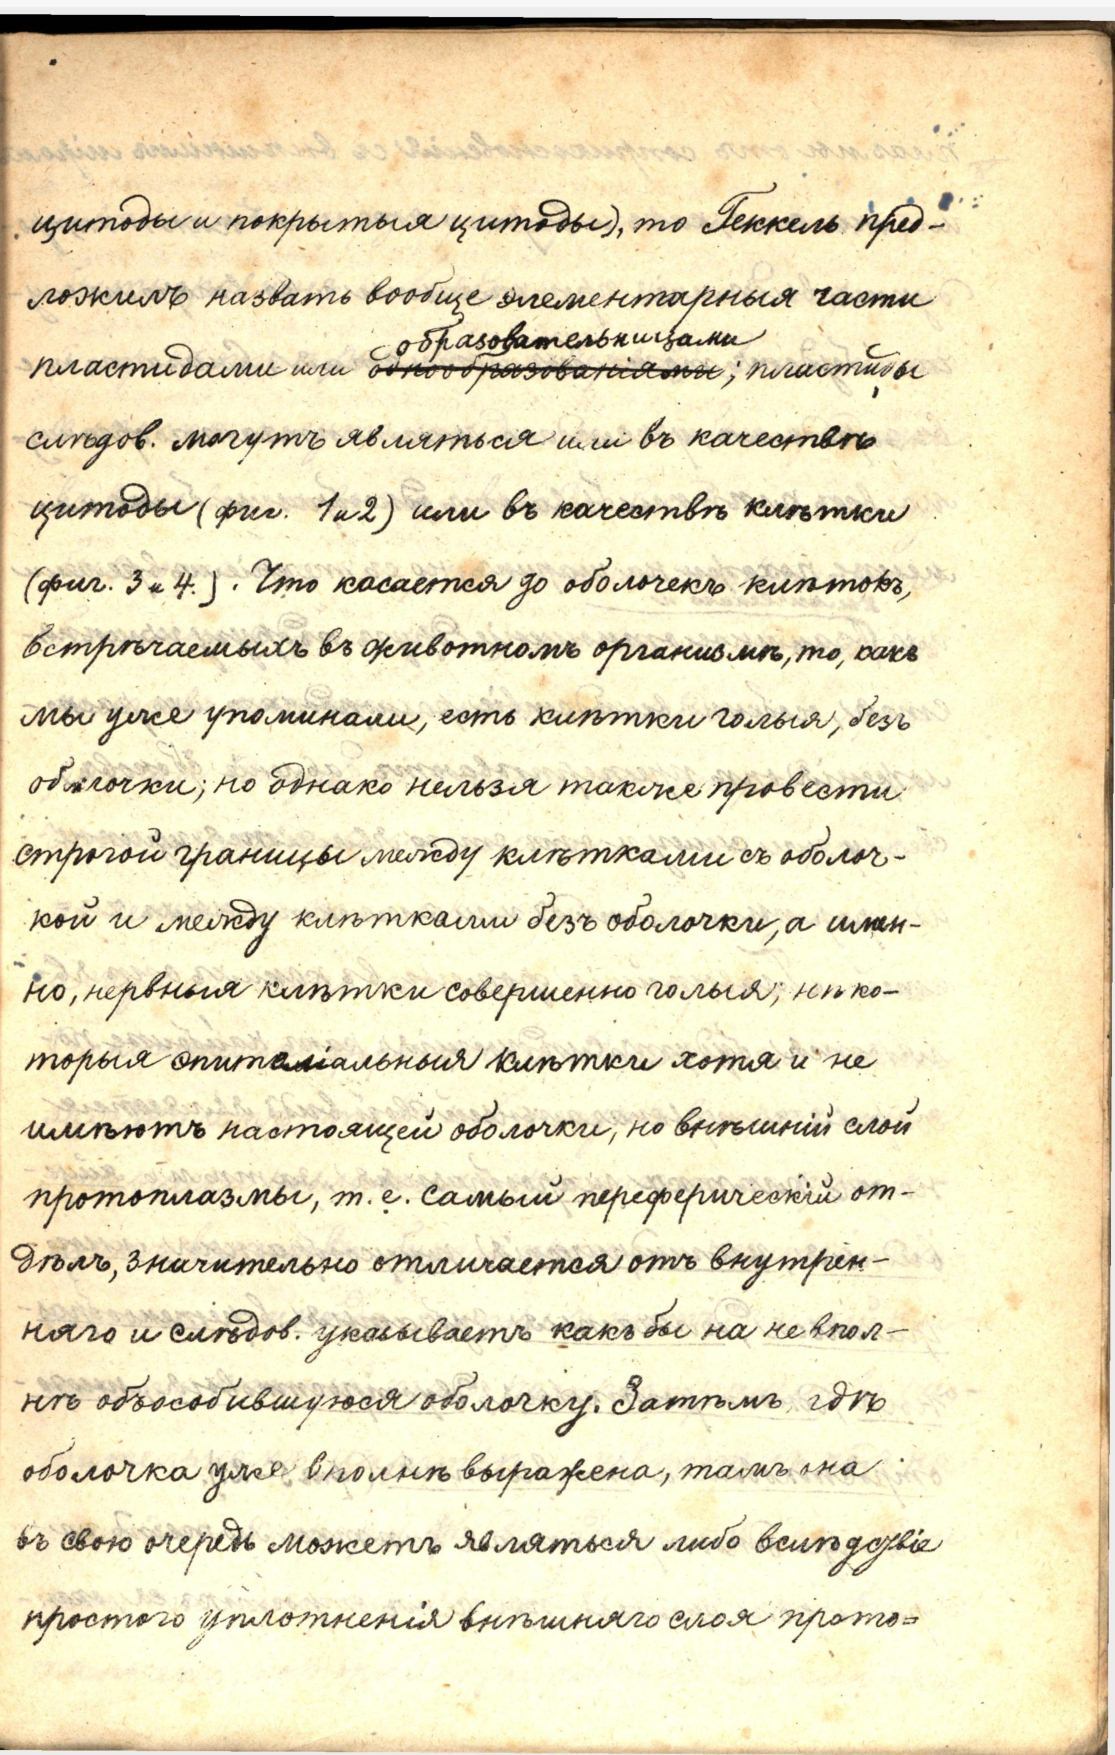 цитоды и покрытыя цитоды), то Геккель пред-
ложилъ назвать вообще элементарныя части
образовательницами
пластидами или однообразованіями; пластиды
слѣдов. могутъ являться или въ качествѣ
цитоды (фиг. 1 и 2) или въ качествѣ клѣтки
(фиг. 3 и 4.). Что касается до оболочекъ клѣтокъ,
встрѣчаемыхъ въ животномъ организмѣ, то, какъ
мы уже упоминали, есть клѣтки голыя, безъ
оболочки; но однако нельзя также провести
строгой границы между клѣтками съ оболоч-
кой и между клѣтками безъ оболочки, а имен-
но, нервныя клѣтки совершенно голыя; нѣко-
торыя эпителіальныя клѣтки хотя и не
имѣютъ настоящей оболочки, но внѣшній слой
протоплазмы, т. е. самый переферическій от-
дѣлъ, значительно отличается отъ внутрен-
няго и слѣдов. указываетъ какъ бы на не впол-
нѣ объособившуюся оболочку. Затѣмъ, гдѣ
оболочка уже вполнѣ выражена, тамъ она
въ свою очередь можетъ являться либо вслѣдствіе
простого уплотненія внѣшняго слоя прото=